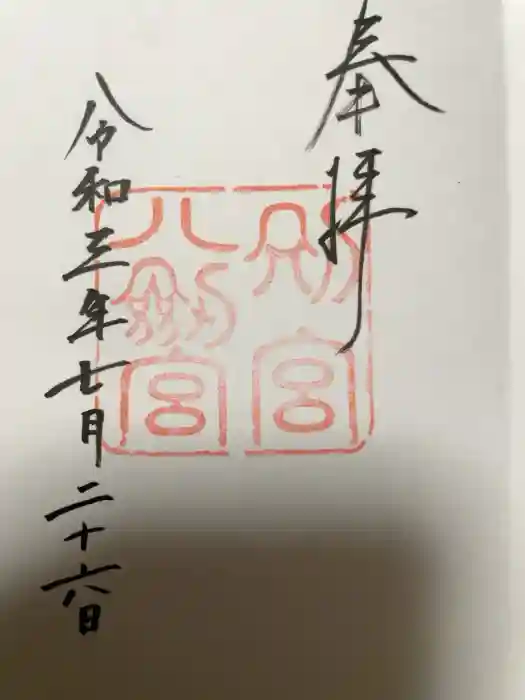 奉拝
別宮
八劔宮
令和三年七月二十六日